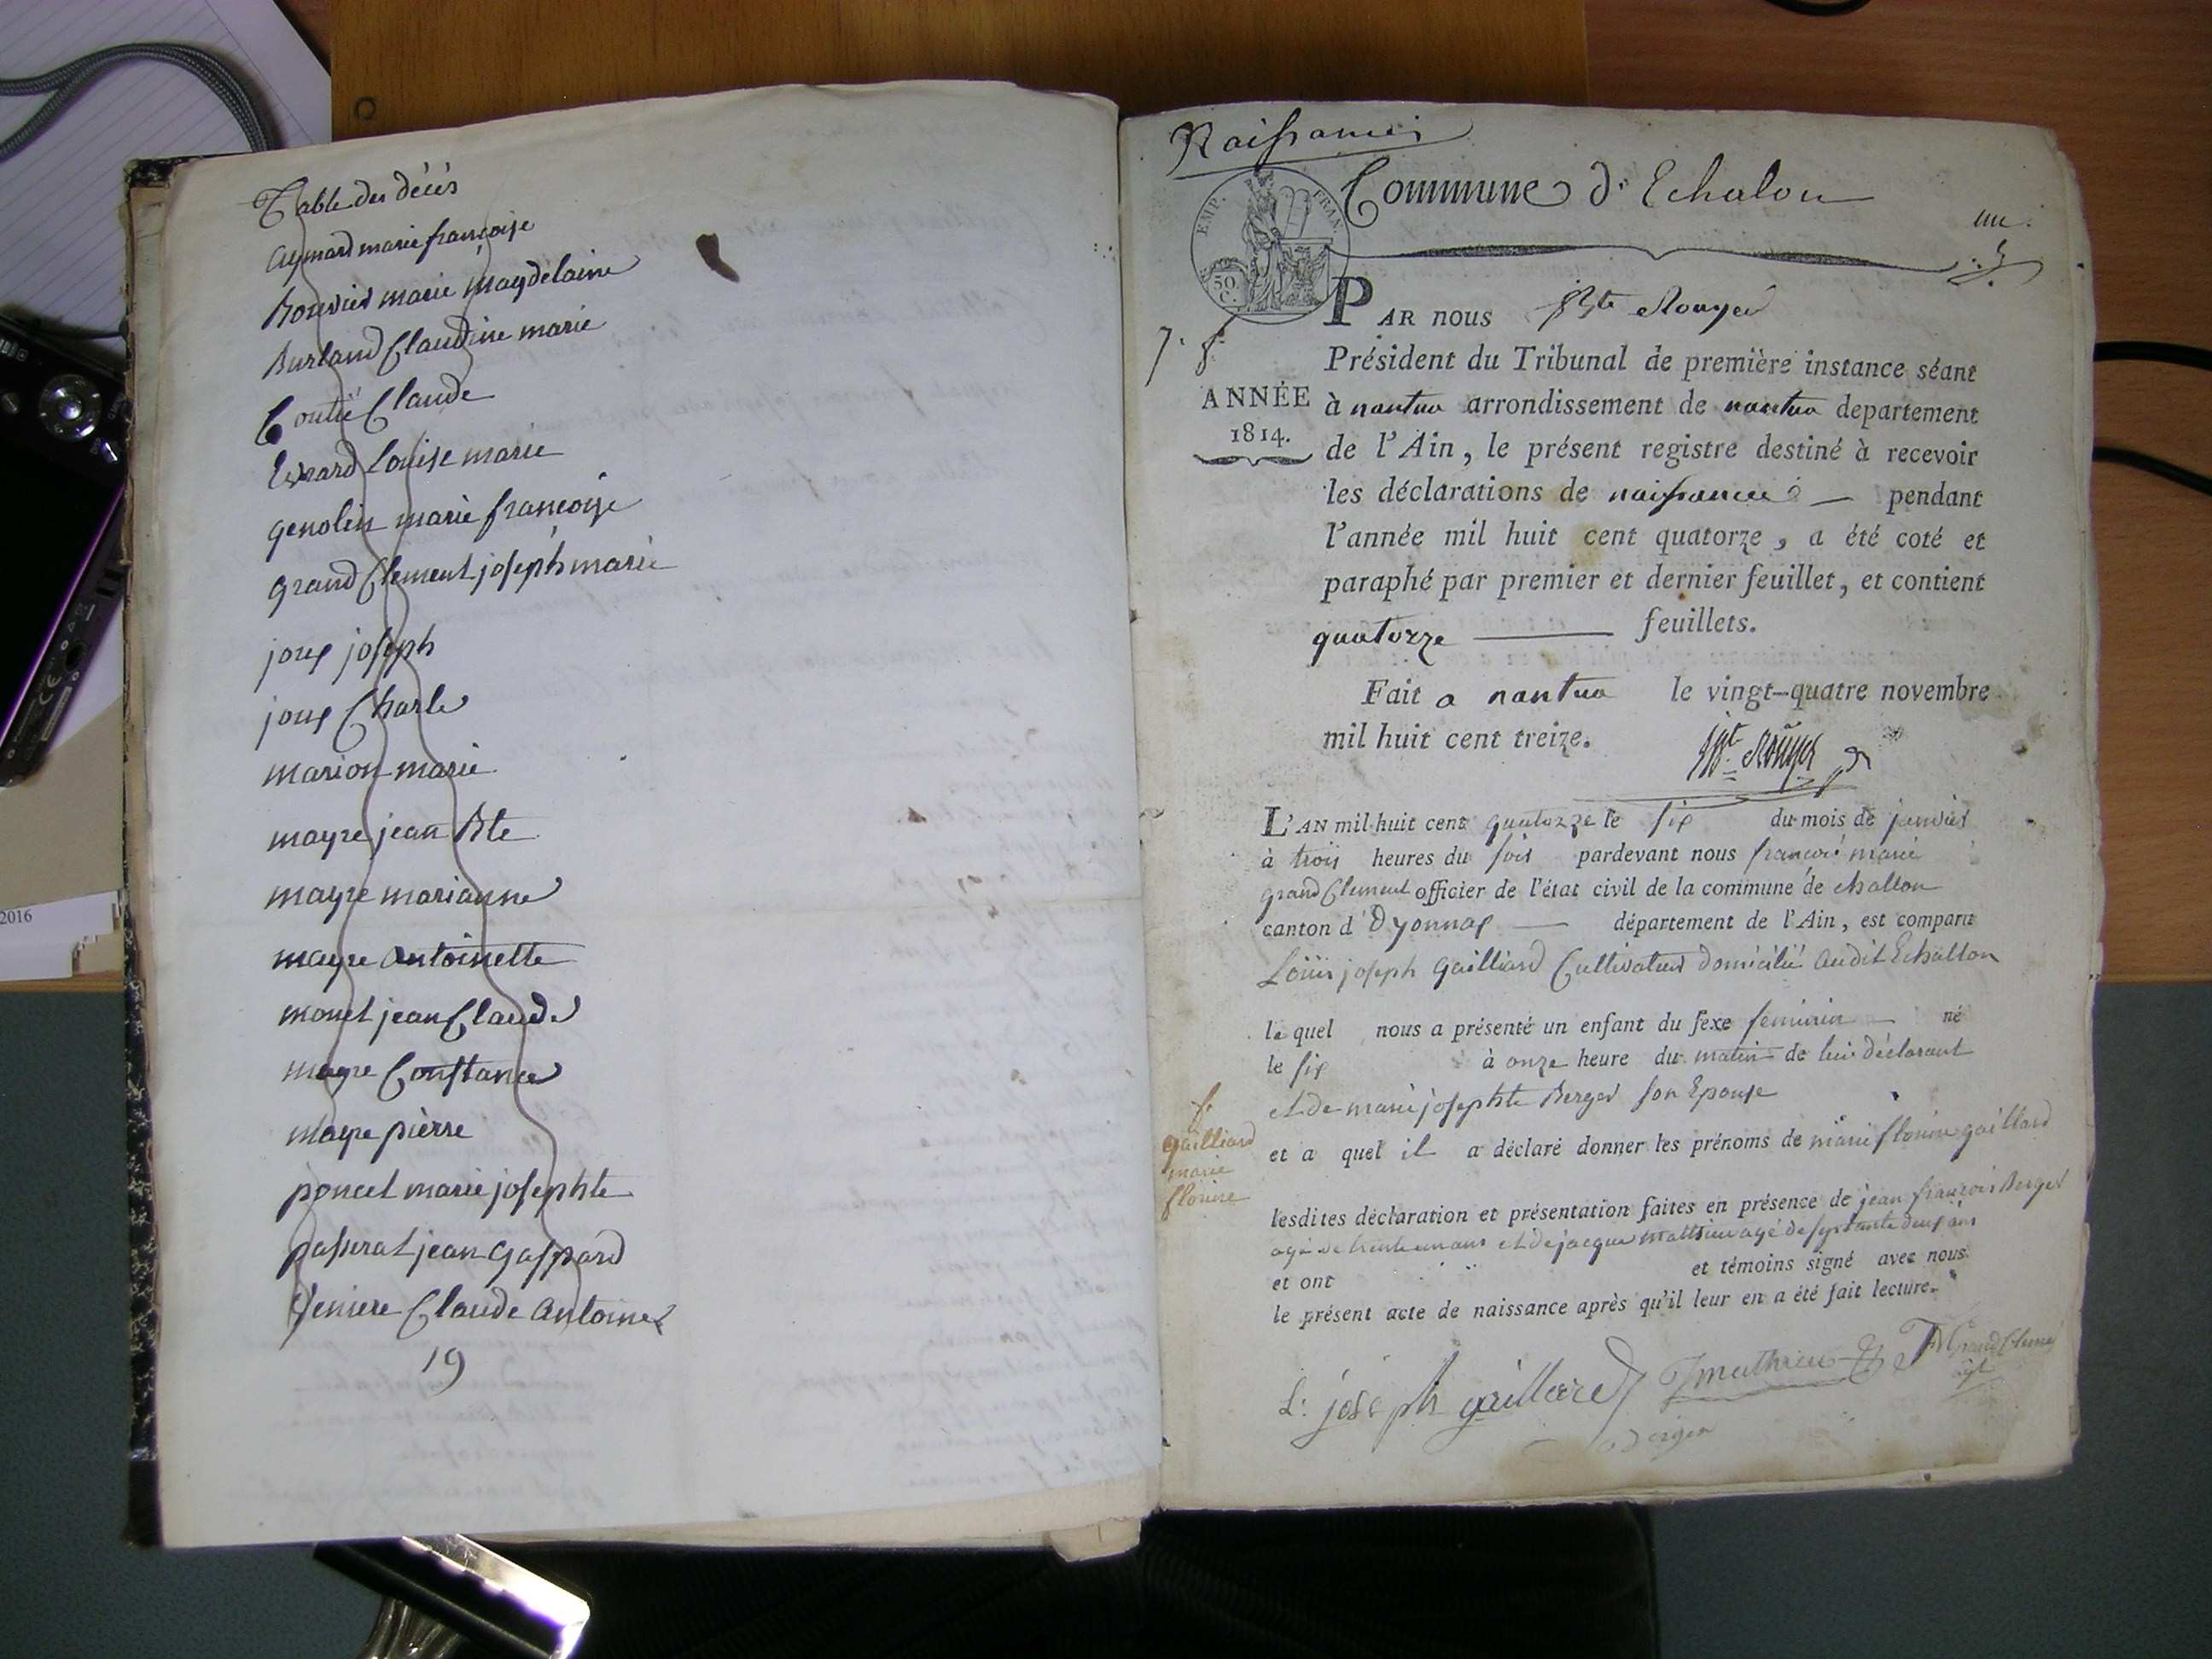 Table des décès
Aymard marie françoise
Bouvier marie magdelaine
Burland Claudine marie
Coutié Claude
Evrard Louise marie
genolin marie françoise
grand Clement joseph marie
joux joseph
joux Charle
marion marie
mayre jean Bte
mayre marianne
mayre antoinette
monet jean Claude
mayre Constance
mayre pierre
poncet marie josephte
passerat jean gaspard
Veniere Claude antoine
19
Naissances
Commune d'Echalon
un.
EMP. FRAN.
50.
C.
PAR nous Jn Bte Rouyer
7. f.
Président du Tribunal de première instance séant
ANNÉE
1814.
à nantua arrondissement de nantua departement
de l'Ain, le présent registre destiné à recevoir
les déclarations de naissance — pendant
l'année mil huit cent quatorze, a été coté et
paraphé par premier et dernier feuillet, et contient
quatorze — feuillets.
Fait a nantua le vingt-quatre novembre
mil huit cent treize.
Jn Bt. Rouyer
L'AN mil huit cent quatorze le six du mois de janvier
à trois heures du soir pardevant nous françois marie
grand Clement officier de l'état civil de la commune de echallon
canton d'Oyonnax — département de l'Ain, est comparu
Louis joseph gailliard Cultivateur domicilié audit Echallon
lequel nous a présenté un enfant du sexe feminin — né
le six à onze heure du matin de lui déclarant
et de marie josephte Berger son Epouse
f.
gailliard
marie
flonine
et a quel il a déclaré donner les prénoms de marie flonine gaillard
lesdites déclaration et présentation faites en présence de jean françois Berger
agé de trente un ans et de jacque matthieu agé de septante deux ans
et ont et témoins signé avec nous
le présent acte de naissance après qu'il leur en a été fait lecture.
L: joseph gaillard J mathieu FM Grand Clement
ajt
berger
2016